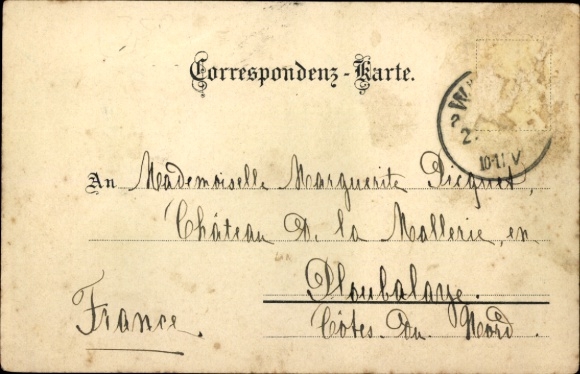 Correspondenz-Karte.
W
2
2.
10-11.V
An Mademoiselle Marguerite Picquet,
Château d. la Mallerie, en
Ploubalay.
Côtes. du. Nord.
France.